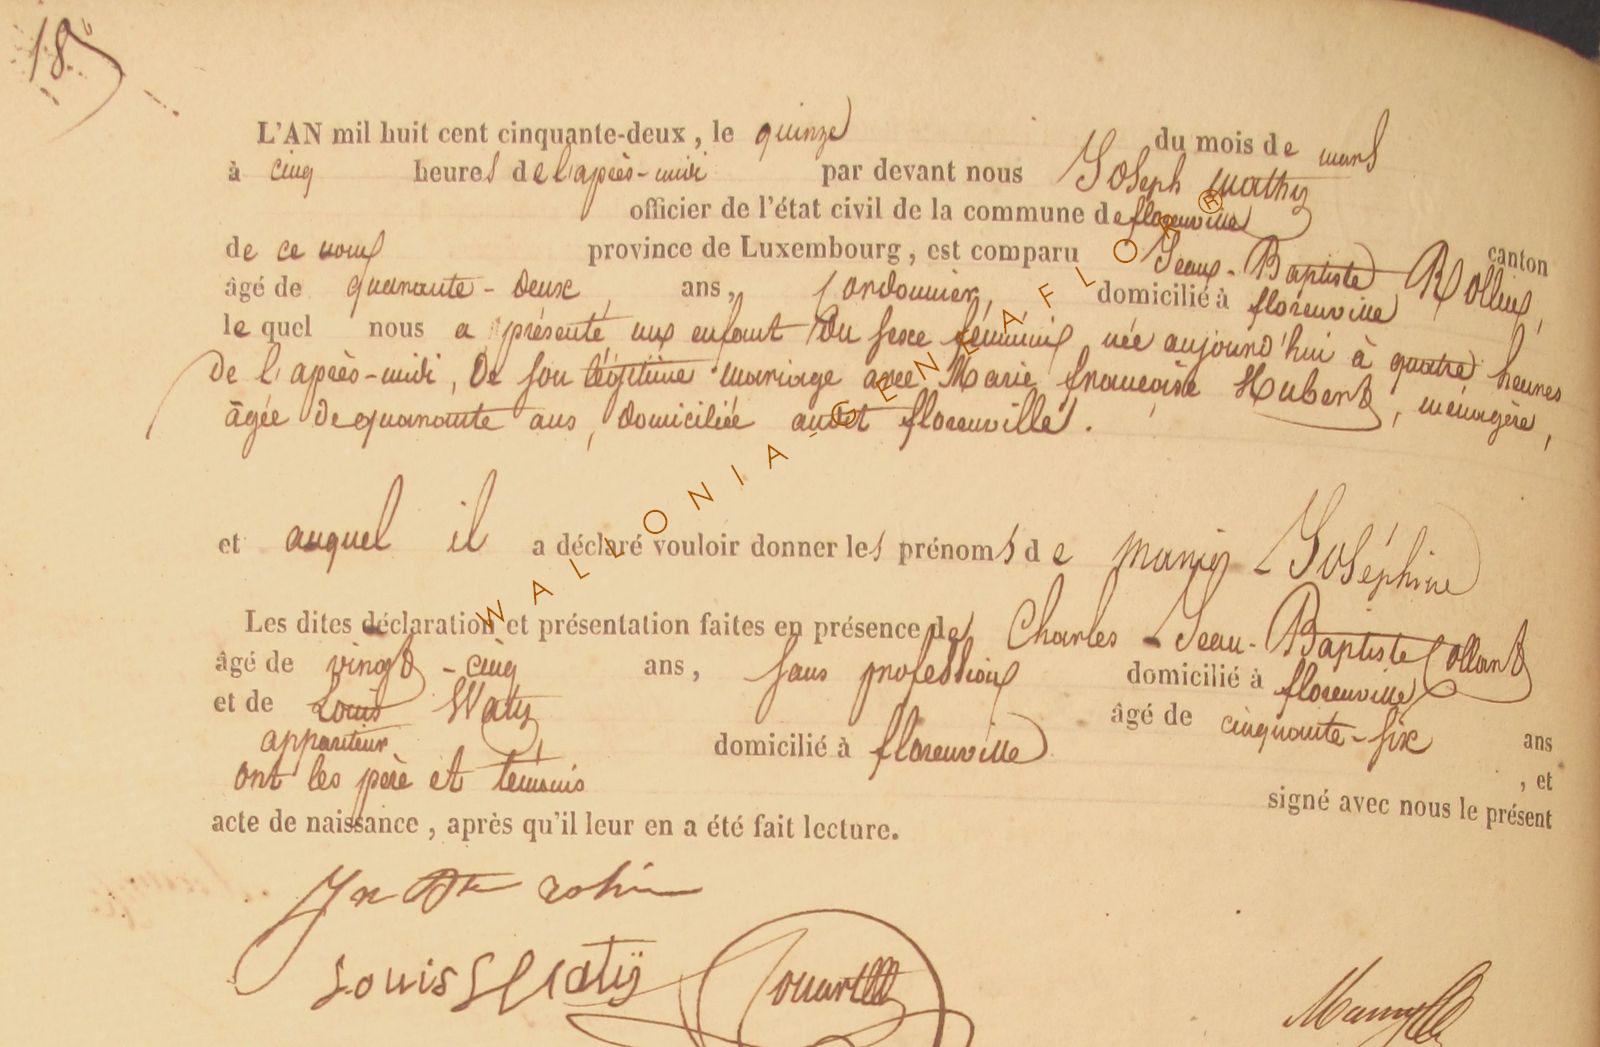 18
L'AN mil huit cent cinquante-deux, le quinze du mois de mars
à cinq heures de l'après-midi par devant nous Joseph Mathy
officier de l'état civil de la commune de florenville canton
de ce nom province de Luxembourg, est comparu Jean-Baptiste Rollin,
âgé de quarante-deux ans, Cordonnier, domicilié à florenville
le quel nous a présenté un enfant du sexe féminin née aujourd'hui à quatre heures
de l'après-midi, de son légitime mariage avec Marie françoise Hubert, ménagère,
âgée de quarante ans, domiciliée audit florenville.
et auquel il a déclaré vouloir donner les prénoms de Marie Joséphine
Les dites déclaration et présentation faites en présence de Charles-Jean-Baptiste Collard
âgé de vingt-cinq ans, sans profession domicilié à florenville
et de Louis Waty âgé de cinquante-six ans
appariteur domicilié à florenville, et
ont les père et témoins signé avec nous le présent
acte de naissance, après qu'il leur en a été fait lecture.
Jn Bte
Louis Watÿ
WALLONIA-GENEAFLOR ®